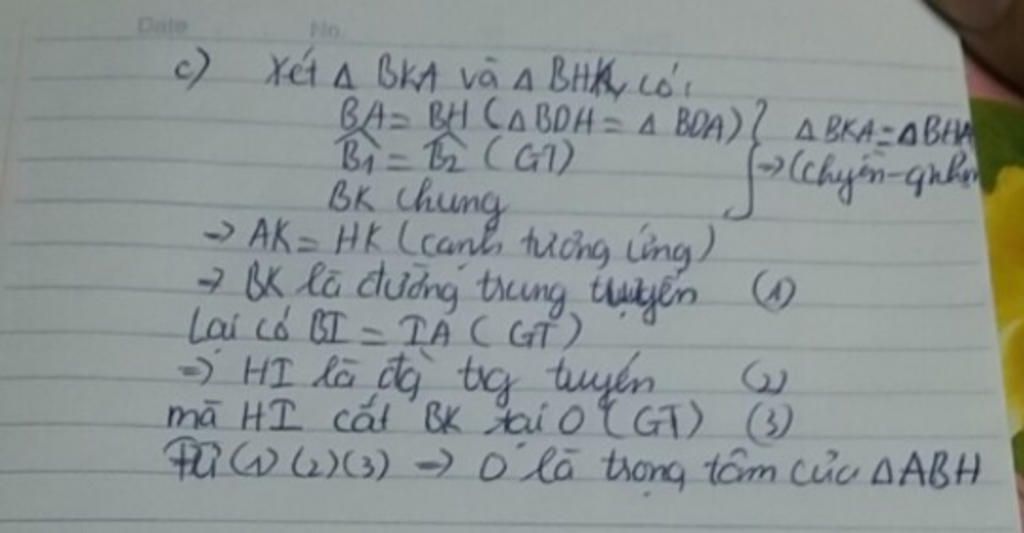 Date No.
c) Xét Δ BKA và Δ BHK, có:
BA = BH (Δ BDH = Δ BDA)
B̂1 = B̂2 (GT)
BK chung
Δ BKA = Δ BHA
→ (chuyền-gnhọn
→ AK = HK (cạnh tương ứng)
→ BK là đường trung tuyến (1)
Lại có BI = IA (GT)
→ HI là đg trg tuyến (2)
mà HI cắt BK tại O (GT) (3)
Từ (1) (2) (3) → O là trọng tâm của Δ ABH